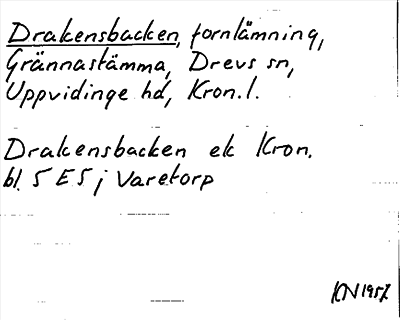 Drakensbacken, fornlämning,
Grännastämma, Drevs sn,
Uppvidinge hd, Kron.l.
Drakensbacken ek Kron.
bl. 5 E 5 j Varetorp
KN 1957